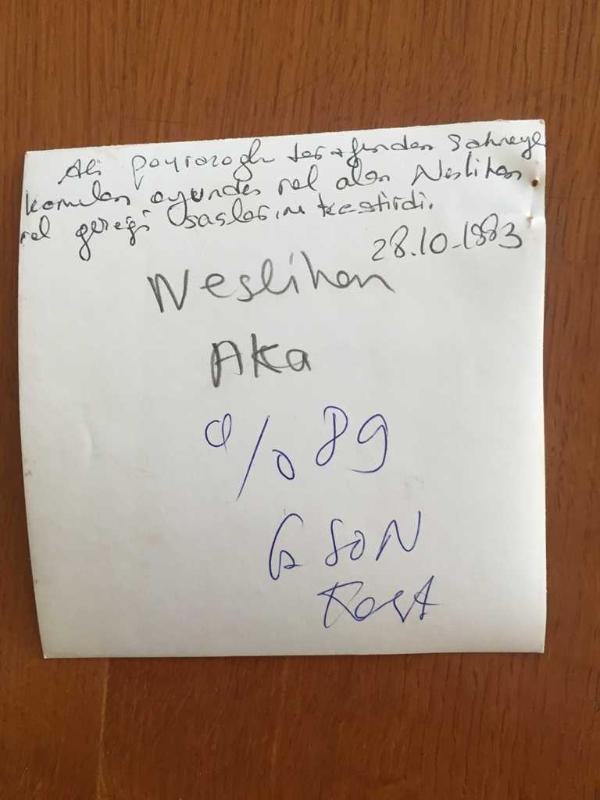 Ali Poyrazoğlu tarafından sahneye
konulan oyunda rol alan Neslihan
rol gereği saçlarını kestirdi.
28.10.1983
Neslihan
AKA
%89
6 SON